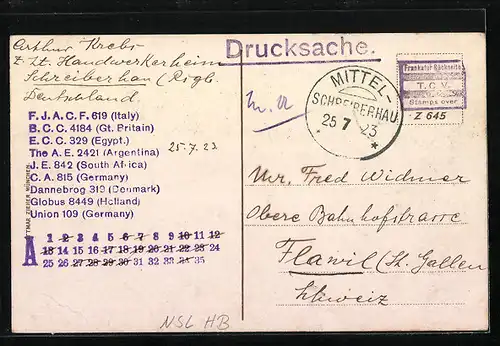 Drucksache.
Arthur Krebs
z. Zt. Handwerkerheim
Schreiberhau (Rsgb.
Deutschland.
F. J. A. C. F. 619 (Italy)
B. C. C. 4184 (Gt. Britain)
E. C. C. 329 (Egypt.)
The A. E. 2421 (Argentina)
J. E. 842 (South Africa)
C. A. 815 (Germany)
Dannebrog 319 (Denmark)
Globus 8449 (Holland)
Union 109 (Germany)
25.7.23
A 1 2 3 4 5 6 7 8 9 10 11 12
13 14 15 16 17 18 19 20 21 22 23 24
25 26 27 28 29 30 31 32 33 34 35
NSL HB
MITTEL-
SCHREIBERHAU
25 7 23
*
Frankatur Rückseite
T. C. V.
Stamps over
Z 645
Mr. Fred Widmer
Obere Bahnhofstrasse
Flawil (St. Gallen
Schweiz